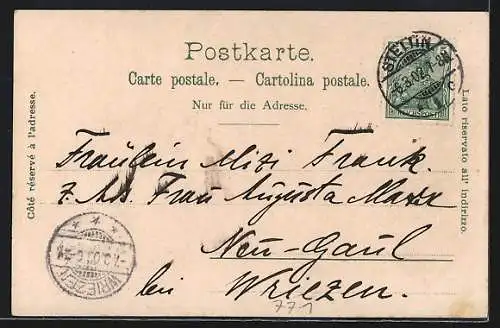 Postkarte.
Carte postale. — Cartolina postale.
Nur für die Adresse.
Côté réservé à l'adresse.
Lato riservato all' indirizzo.
STETTIN
6.3.02.7-8N
c
Fräulein Mizi Frank.
z. Hd. Frau Augusta
Neu-Gaul
bei Wriezen.
WRIEZEN
7.3.02
771